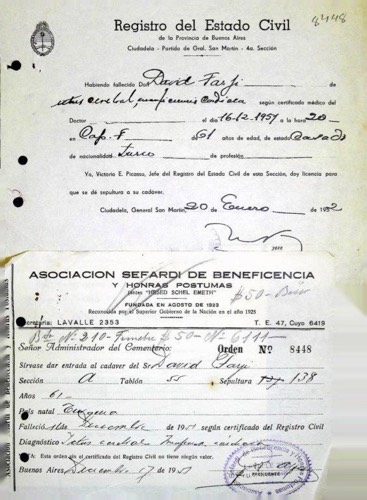 8448
Registro del Estado Civil
de la Provincia de Buenos Aires
Ciudadela - Partido de Gral. San Martín - 4a. Sección
Habiendo fallecido Don David Farji de
según certificado médico del
Doctor el día 16-12-1951 a la hora 20
en 61 años de edad, de estado Casado
de nacionalidad Turco de profesión
Yo, Victorio E. Picasso, Jefe del Registro del Estado Civil de esta Sección, doy licencia para
que se dé sepultura a su cadaver.
Ciudadela, General San Martín, 20 Enero de 1952
ASOCIACION SEFARDI DE BENEFICENCIA
Y HONRAS POSTUMAS
(Antes "HESED SCHEL EMETH")
FUNDADA EN AGOSTO DE 1923
$50-
Reconocida por el Superior Gobierno de la Nación en el año 1925
Secretaría: LAVALLE 2353 T. E. 47, Cuyo 6419
Nº 210- $50- Nº 6111-
Señor Administrador del Cementerio: Orden Nº 8448
Sírvase dar entrada al cadaver del Sr David Farji
Sección A Tablón 55 Sepultura 138
Años 61-
País natal
Falleció 16 Diciembre de 1951 según certificado del Registro Civil
Diagnóstico
NOTA: Esta orden sin el certificado del Registro Civil no tiene ningún valor.
Buenos Aires, Diciembre 17 de 1951